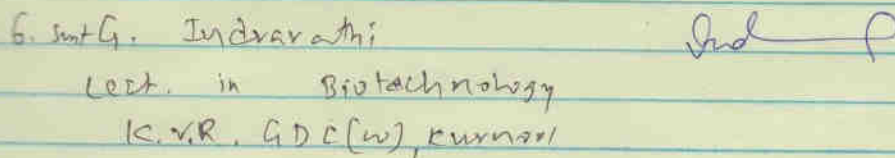 6. Smt G. Indravathi
Lect. in Biotechnology
K.V.R. GDC(W), Kurnool